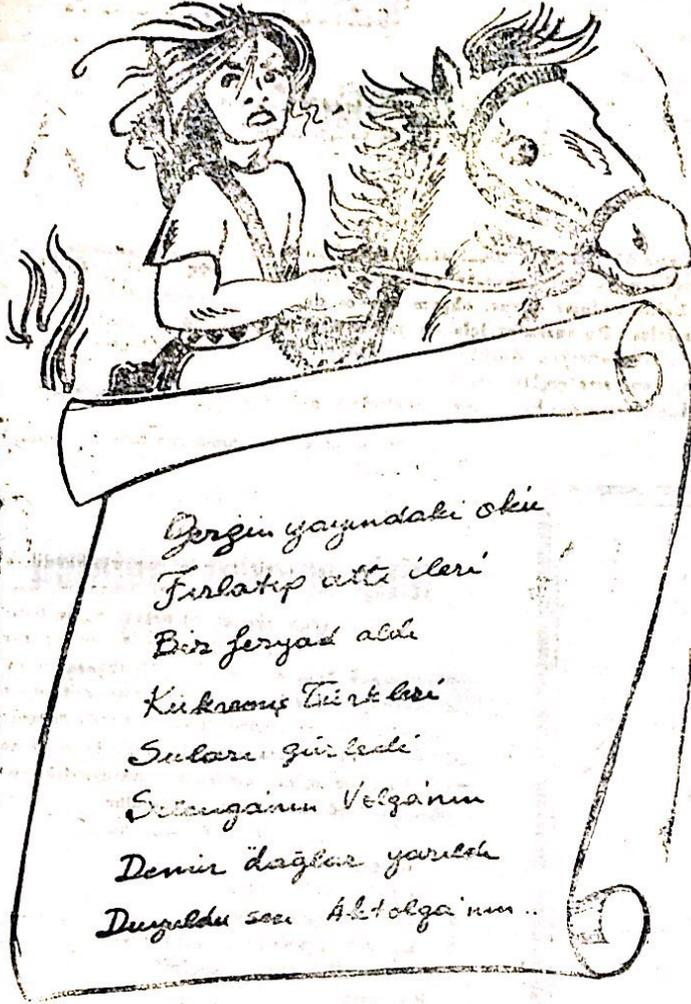 Gergin yayındaki oku
Fırlatıp attı ileri
Bir feryad aldı
Kükremiş Türkleri
Suları gürledi
Selenga'nın Volga'nın
Demir dağlar yarıldı
Duyuldu sesi Aktolga'nın..